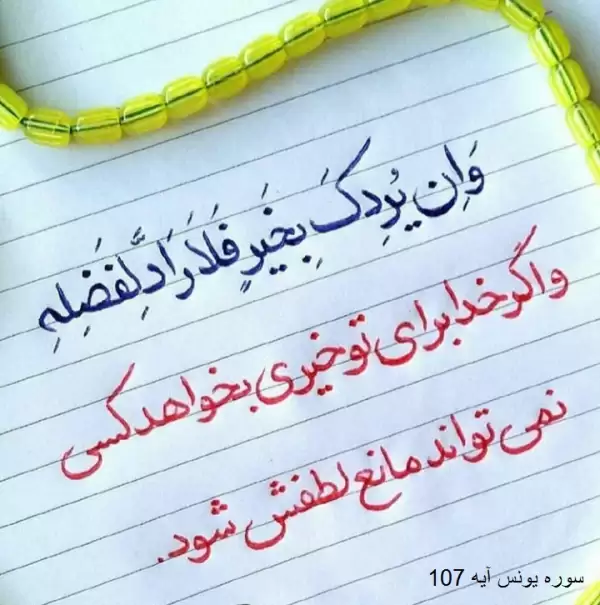 وَاِن یُرِدکَ بِخَیرٍ فَلَارَادَّ لِفَضلِهِ
واگر خدا برای تو خیری بخواهد کسی
نمی تواند مانع لطفش شود.
سوره یونس آیه 107